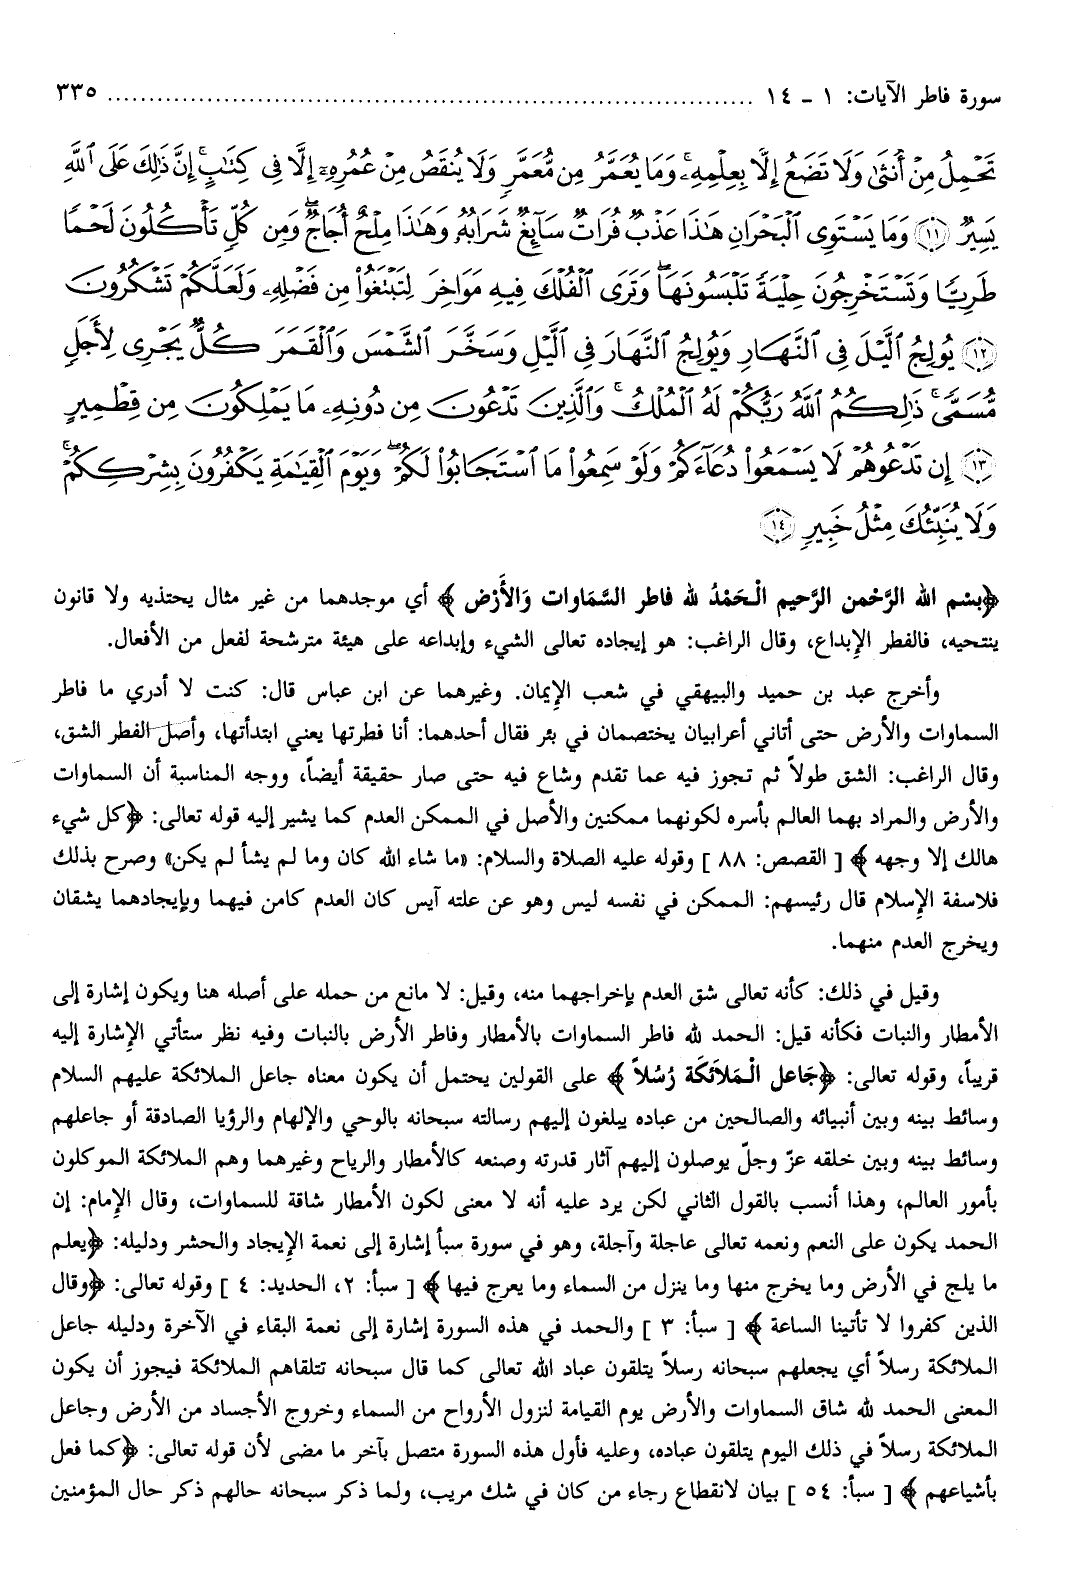 سورة فاطر الآيات: ١ - ١٤ ........................................................................ ٣٣٥
تَحْمِلُ مِنْ أُنثَىٰ وَلَا تَضَعُ إِلَّا بِعِلْمِهِۦ ۚ وَمَا يُعَمَّرُ مِن مُّعَمَّرٍ وَلَا يُنقَصُ مِنْ عُمُرِهِۦٓ إِلَّا فِى كِتَـٰبٍ ۚ إِنَّ ذَٰلِكَ عَلَى ٱللَّهِ
يَسِيرٌ ﴿١١﴾ وَمَا يَسْتَوِى ٱلْبَحْرَانِ هَـٰذَا عَذْبٌ فُرَاتٌ سَآئِغٌ شَرَابُهُۥ وَهَـٰذَا مِلْحٌ أُجَاجٌ ۖ وَمِن كُلٍّ تَأْكُلُونَ لَحْمًا
طَرِيًّا وَتَسْتَخْرِجُونَ حِلْيَةً تَلْبَسُونَهَا ۖ وَتَرَى ٱلْفُلْكَ فِيهِ مَوَاخِرَ لِتَبْتَغُوا۟ مِن فَضْلِهِۦ وَلَعَلَّكُمْ تَشْكُرُونَ
﴿١٢﴾ يُولِجُ ٱلَّيْلَ فِى ٱلنَّهَارِ وَيُولِجُ ٱلنَّهَارَ فِى ٱلَّيْلِ وَسَخَّرَ ٱلشَّمْسَ وَٱلْقَمَرَ كُلٌّ يَجْرِى لِأَجَلٍ
مُّسَمًّى ۚ ذَٰلِكُمُ ٱللَّهُ رَبُّكُمْ لَهُ ٱلْمُلْكُ ۚ وَٱلَّذِينَ تَدْعُونَ مِن دُونِهِۦ مَا يَمْلِكُونَ مِن قِطْمِيرٍ
﴿١٣﴾ إِن تَدْعُوهُمْ لَا يَسْمَعُوا۟ دُعَآءَكُمْ وَلَوْ سَمِعُوا۟ مَا ٱسْتَجَابُوا۟ لَكُمْ ۖ وَيَوْمَ ٱلْقِيَـٰمَةِ يَكْفُرُونَ بِشِرْكِكُمْ ۚ
وَلَا يُنَبِّئُكَ مِثْلُ خَبِيرٍ ﴿١٤﴾
﴿بسْم الله الرَّحْمن الرَّحيم الْحَمْدُ لله فاطر السَّمَاوات وَالأَرْض﴾ أي موجدهما من غير مثال يحتذيه ولا قانون
ينتحيه، فالفطر الإبداع، وقال الراغب: هو إيجاده تعالى الشيء وإبداعه على هيئة مترشحة لفعل من الأفعال.
وأخرج عبد بن حميد والبيهقي في شعب الإيمان. وغيرهما عن ابن عباس قال: كنت لا أدري ما فاطر
السماوات والأرض حتى أتاني أعرابيان يختصمان في بئر فقال أحدهما: أنا فطرتها يعني ابتدأتها، وأصل الفطر الشق،
وقال الراغب: الشق طولاً ثم تجوز فيه عما تقدم وشاع فيه حتى صار حقيقة أيضاً، ووجه المناسبة أن السماوات
والأرض والمراد بهما العالم بأسره لكونهما ممكنين والأصل في الممكن العدم كما يشير إليه قوله تعالى: ﴿كل شيء
هالك إلا وجهه﴾ [ القصص: ٨٨ ] وقوله عليه الصلاة والسلام: «ما شاء الله كان وما لم يشأ لم يكن» وصرح بذلك
فلاسفة الإسلام قال رئيسهم: الممكن في نفسه ليس وهو عن علته آيس كان العدم كامن فيهما وبإيجادهما يشقان
ويخرج العدم منهما.
وقيل في ذلك: كأنه تعالى شق العدم بإخراجهما منه، وقيل: لا مانع من حمله على أصله هنا ويكون إشارة إلى
الأمطار والنبات فكأنه قيل: الحمد لله فاطر السماوات بالأمطار وفاطر الأرض بالنبات وفيه نظر ستأتي الإشارة إليه
قريباً، وقوله تعالى: ﴿جَاعل الْمَلاَئكَة رُسُلاً﴾ على القولين يحتمل أن يكون معناه جاعل الملائكة عليهم السلام
وسائط بينه وبين أنبيائه والصالحين من عباده يبلغون إليهم رسالته سبحانه بالوحي والإلهام والرؤيا الصادقة أو جاعلهم
وسائط بينه وبين خلقه عزّ وجلّ يوصلون إليهم آثار قدرته وصنعه كالأمطار والرياح وغيرهما وهم الملائكة الموكلون
بأمور العالم، وهذا أنسب بالقول الثاني لكن يرد عليه أنه لا معنى لكون الأمطار شاقة للسماوات، وقال الإمام: إن
الحمد يكون على النعم ونعمه تعالى عاجلة وآجلة، وهو في سورة سبأ إشارة إلى نعمة الإيجاد والحشر ودليله: ﴿يعلم
ما يلج في الأرض وما يخرج منها وما ينزل من السماء وما يعرج فيها﴾ [ سبأ: ٢، الحديد: ٤ ] وقوله تعالى: ﴿وقال
الذين كفروا لا تأتينا الساعة﴾ [ سبأ: ٣ ] والحمد في هذه السورة إشارة إلى نعمة البقاء في الآخرة ودليله جاعل
الملائكة رسلاً أي يجعلهم سبحانه رسلاً يتلقون عباد الله تعالى كما قال سبحانه تتلقاهم الملائكة فيجوز أن يكون
المعنى الحمد لله شاق السماوات والأرض يوم القيامة لنزول الأرواح من السماء وخروج الأجساد من الأرض وجاعل
الملائكة رسلاً في ذلك اليوم يتلقون عباده، وعليه فأول هذه السورة متصل بآخر ما مضى لأن قوله تعالى: ﴿كما فعل
بأشياعهم﴾ [ سبأ: ٥٤ ] بيان لانقطاع رجاء من كان في شك مريب، ولما ذكر سبحانه حالهم ذكر حال المؤمنين